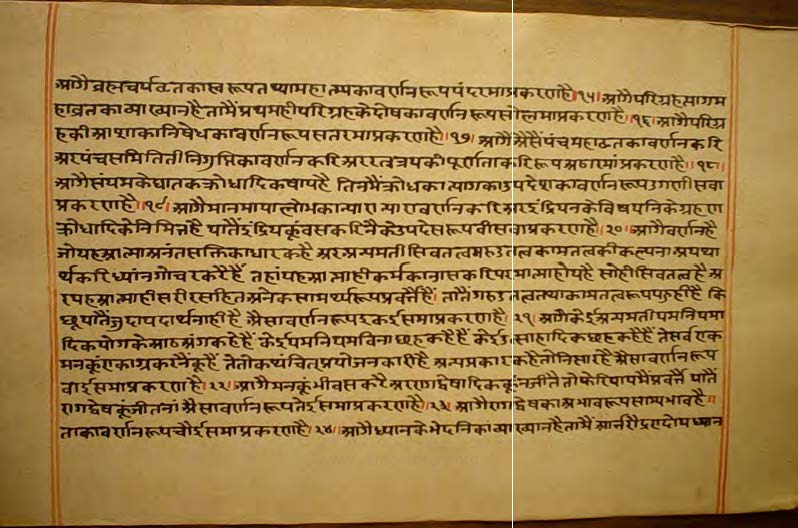 आगै ब्रह्मचर्यव्रतका स्वरूप तथा महात्म्यका वर्णनरूप पंदरमा प्रकरण है।१५। आगै परिग्रहत्यागम
हाव्रतका व्याख्यान है तामैं प्रथमही परिग्रहके दोषका वर्णनरूप सोलमा प्रकरण है।१६। आगै परिग्र
हकी आशाका निषेधका वर्णनरूप सतरमा प्रकरण है।१७। आगै ऐसैं पंचमहाव्रतका वर्णनकरि
अर पंचसमिति तीनिगुप्तिका वर्णनकरि अर रत्नत्रयकी पूर्णताकरिरूप अठारमां प्रकरण है।१८।
आगै संयमके घातक क्रोधादिकषाय है तिनमैं क्रोधका त्यागका उपदेशका वर्णनरूप उगणीसवा
प्रकरण है।१९। आगै मान माया लोभका न्यारा न्यारा वर्णनकरि अर इंद्रियनके विषयनिके ग्रहण
क्रोधादिके निमित्त है यातैं इंद्रियकूं वसकरिनैके उपदेसरूप वीसवा प्रकरण है।२०। आगै वर्णन है
जो यह आत्मा अनंतसक्तिका धारक है अर अन्यमती सिवतत्व गरुडतत्व कामतत्वकी कल्पना अयथा
र्थकरि ध्यांनगोचर करै हैं तहां यह आत्माही कर्मका नासकरि परमात्मा होय है सोही सिवतत्व है अ
र यह आत्माही सरीरसहित अनेक सामर्थ्यरूप प्रवर्त्तै है तातैं गरुडतत्व तथा कामतत्वरूप यही है कि
छू यातैं जुदा पदार्थ नाही है ऐसा वर्णनरूप इकईसमा प्रकरण है।२१। आगै केई अन्यमती यमनियमा
दिक योगके आठ अंग कहै हैं केई यमनियमविना छह कहै हैं केई उत्साहादिक छह कहै हैं ते सर्व एक
मनकूं एकाग्र करनैंकूं हैं ते तौ कथंचित् प्रयोजनकारी है अन्यप्रकार कहै तो निसार है ऐसा वर्णनरूप
वाईसमा प्रकरण है।२२। आगै मनकूं भी वस करै अर रागद्वेषादिककूं न जीतै तो फेरि पापमैं प्रवर्त्तै यातैं
रागद्वेषकूं जीतनां ऐसा वर्णनरूप तेईसमा प्रकरण है।२३। आगै रागद्वेषका अभावरूप साम्यभाव है॥
ताका वर्णनरूप चौईसमा प्रकरण है।२४। आगै ध्यानके भेदनिका व्याख्यान है तामैं आर्त्त रौद्र ए दोय ध्यान